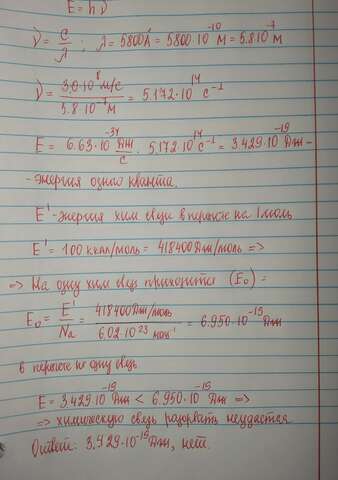 E = hν
ν = c/λ; λ = 5800Å = 5800·10⁻¹⁰ м = 5.8·10⁻⁷ м
ν = 3.0·10⁸ м/с / 5.8·10⁻⁷ м = 5.172·10¹⁴ с⁻¹
E = 6.63·10⁻³⁴ Дж/с · 5.172·10¹⁴ с⁻¹ = 3.429·10⁻¹⁹ Дж –
- энергия одного кванта.
E' - энергия хим связи в перечете на 1 моль
E' = 100 ккал/моль = 418400 Дж/моль =>
=> На одну хим связь приходится (E₀) =
E₀ = E'/Nₐ = 418400 Дж/моль / 6.02·10²³ моль⁻¹ = 6.950·10⁻¹⁹ Дж
в перечете на одну связь
E = 3.429·10⁻¹⁹ Дж < 6.950·10⁻¹⁹ Дж =>
=> химическую связь разорвать неудастся
Ответ: 3.429·10⁻¹⁹ Дж, нет.